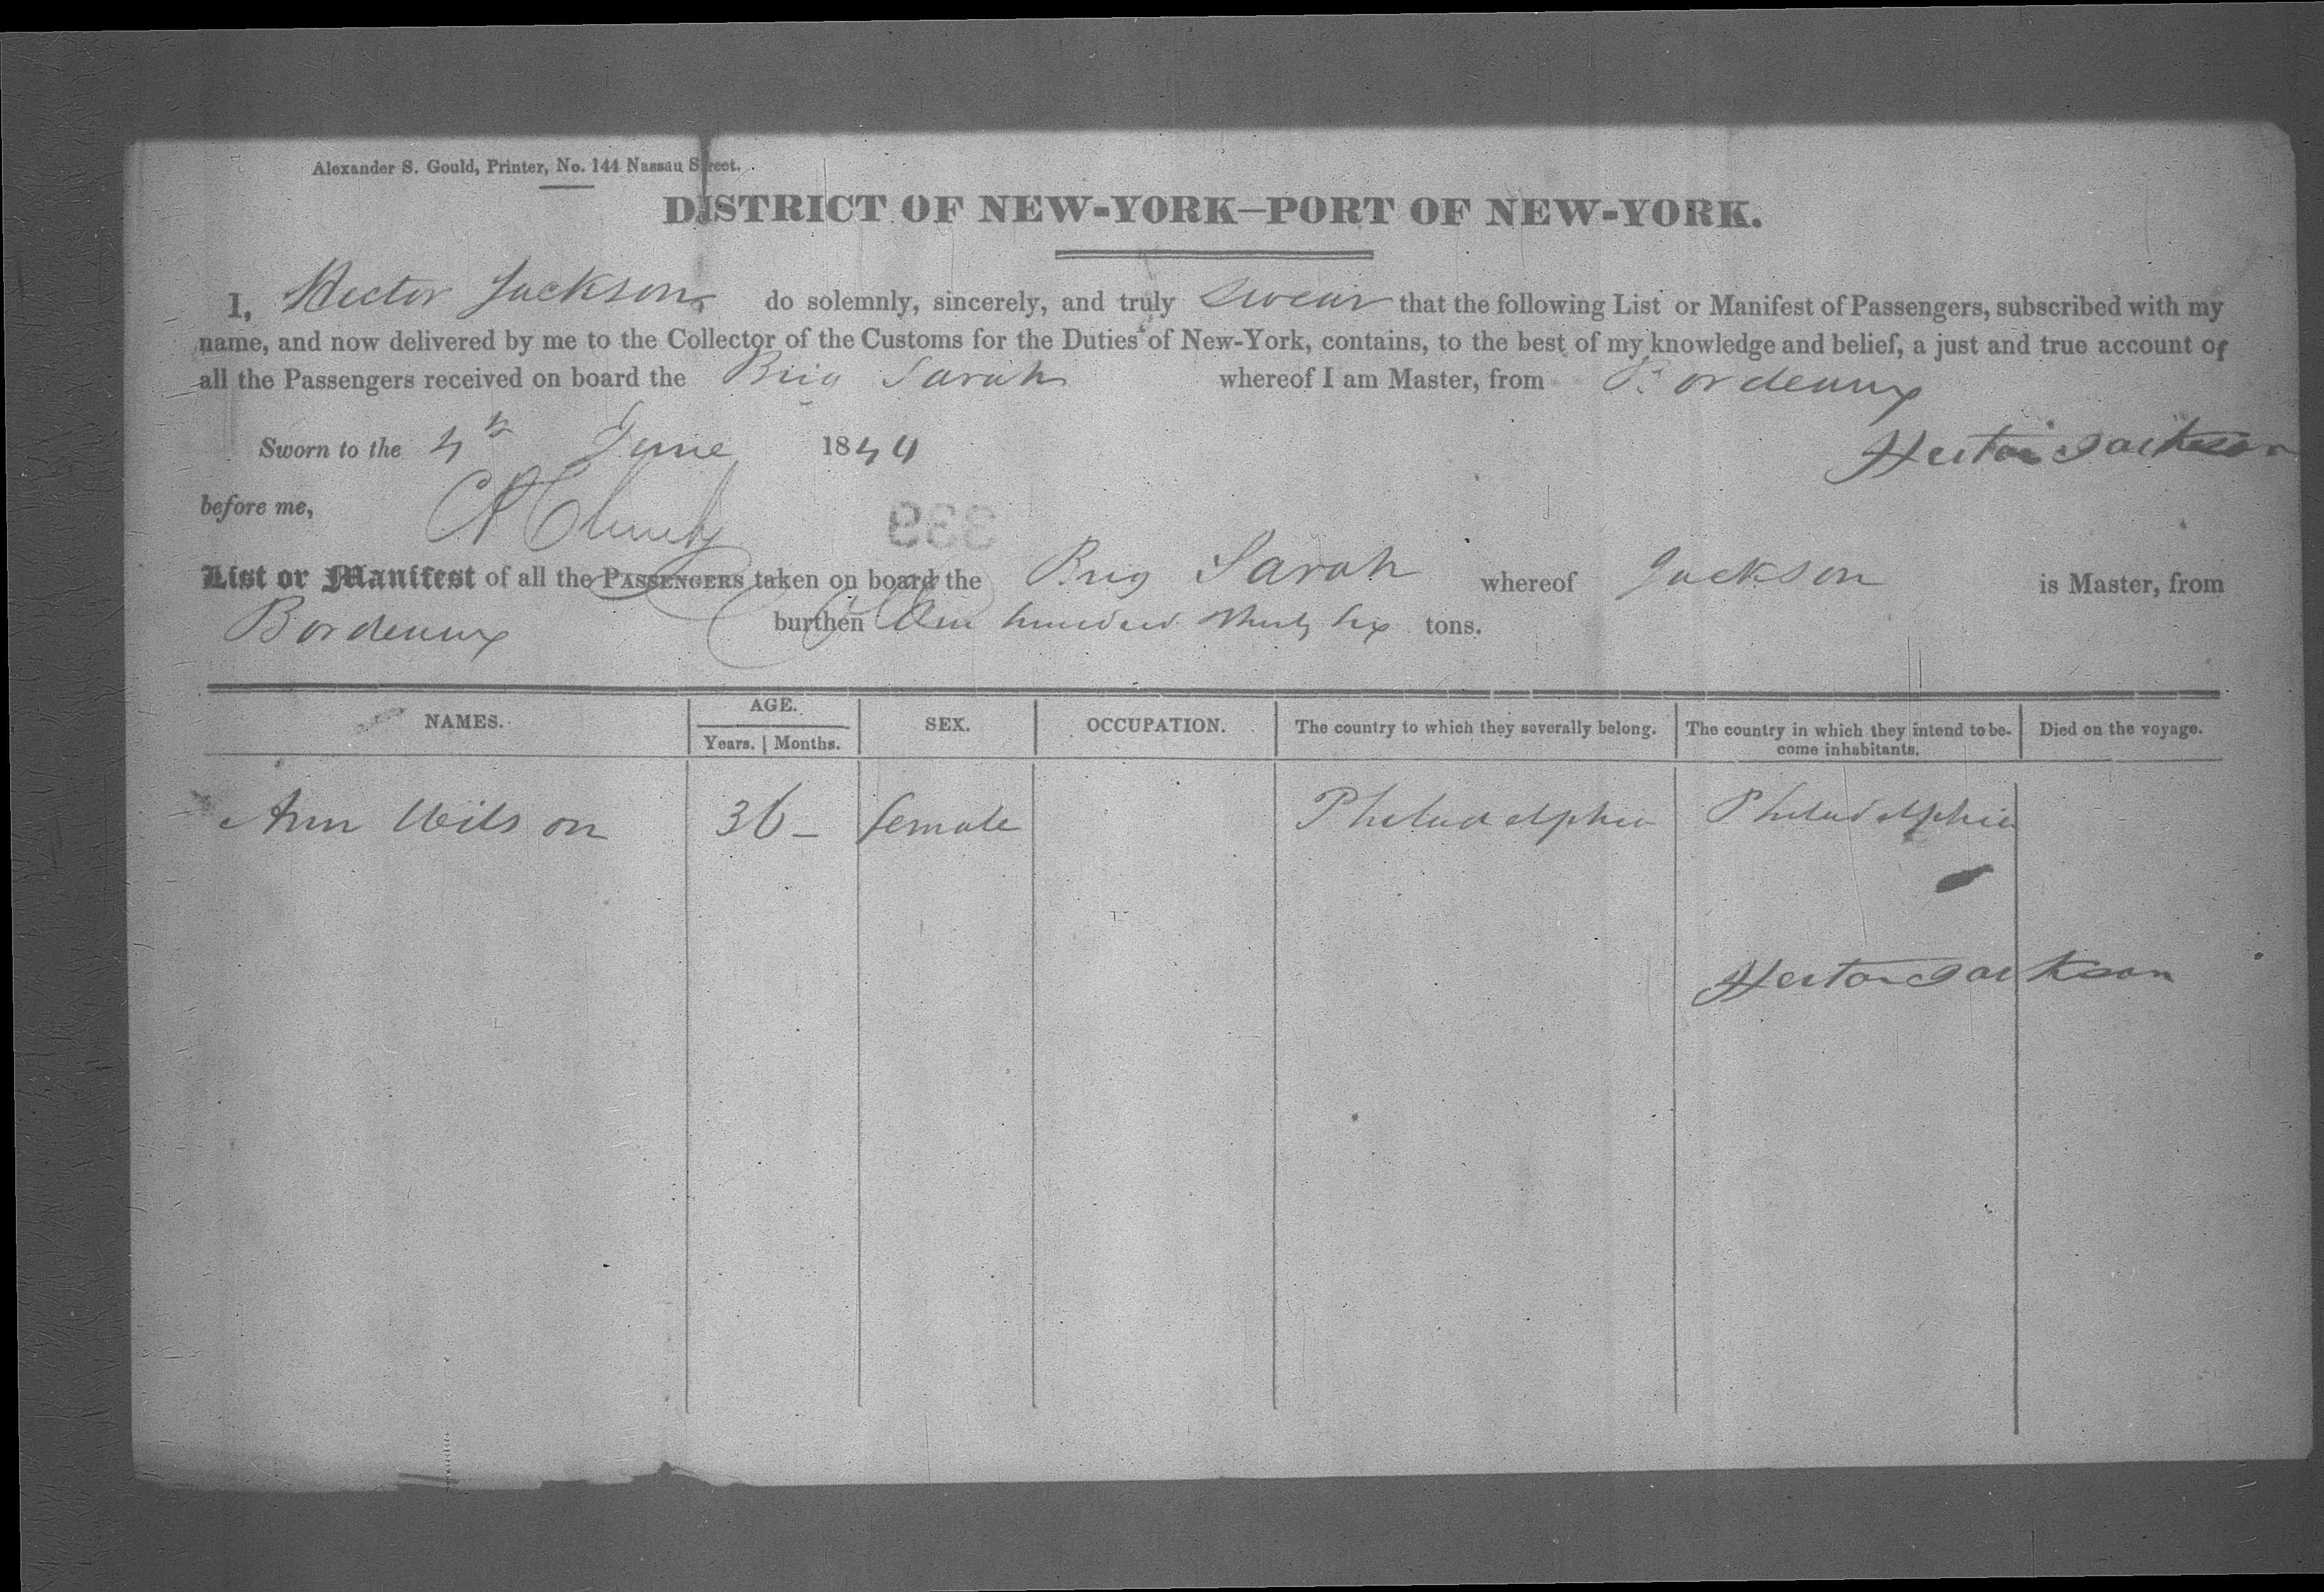 Alexander S. Gould, Printer, No. 144 Nassau Street.
DISTRICT OF NEW-YORK—PORT OF NEW-YORK.
I, Hector Jackson do solemnly, sincerely, and truly swear that the following List or Manifest of Passengers, subscribed with my
name, and now delivered by me to the Collector of the Customs for the Duties of New-York, contains, to the best of my knowledge and belief, a just and true account of
all the Passengers received on board the Brig Sarah whereof I am Master, from Bordeaux
Hector Jackson
Sworn to the 4th June 1844
before me,
339
List or Manifest of all the PASSENGERS taken on board the Brig Sarah whereof Jackson is Master, from
Bordeaux burthen hundred thirty six tons.
NAMES. AGE. SEX. OCCUPATION. The country to which they severally belong. The country in which they intend to be- Died on the voyage.
Years. Months. come inhabitants.
Ann Wilson 36 – female Philadelphia Philadelphia
Hector Jackson